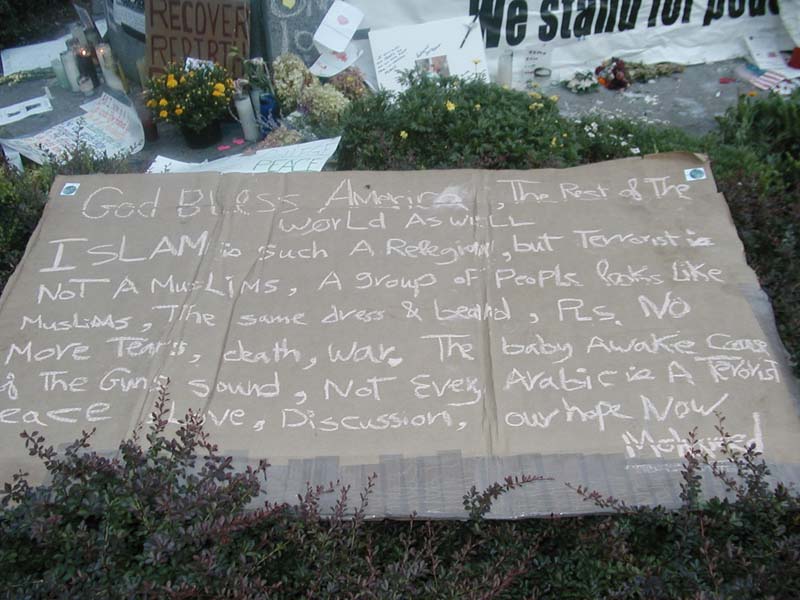 We stand for
RECOVER
PEACE
God Bless America, The Rest of The
World As well
ISLAM is such A Relegion, but Terrorist is
NOT A MusLims, A group of People looks Like
MusLims, The same dress & beard, PLs. No
More Tears, death, war. The baby Awake Cause
of The Guns sound, Not Every Arabic is A Terorist
Peace Love, Discussion, our hope Now
Mohamed